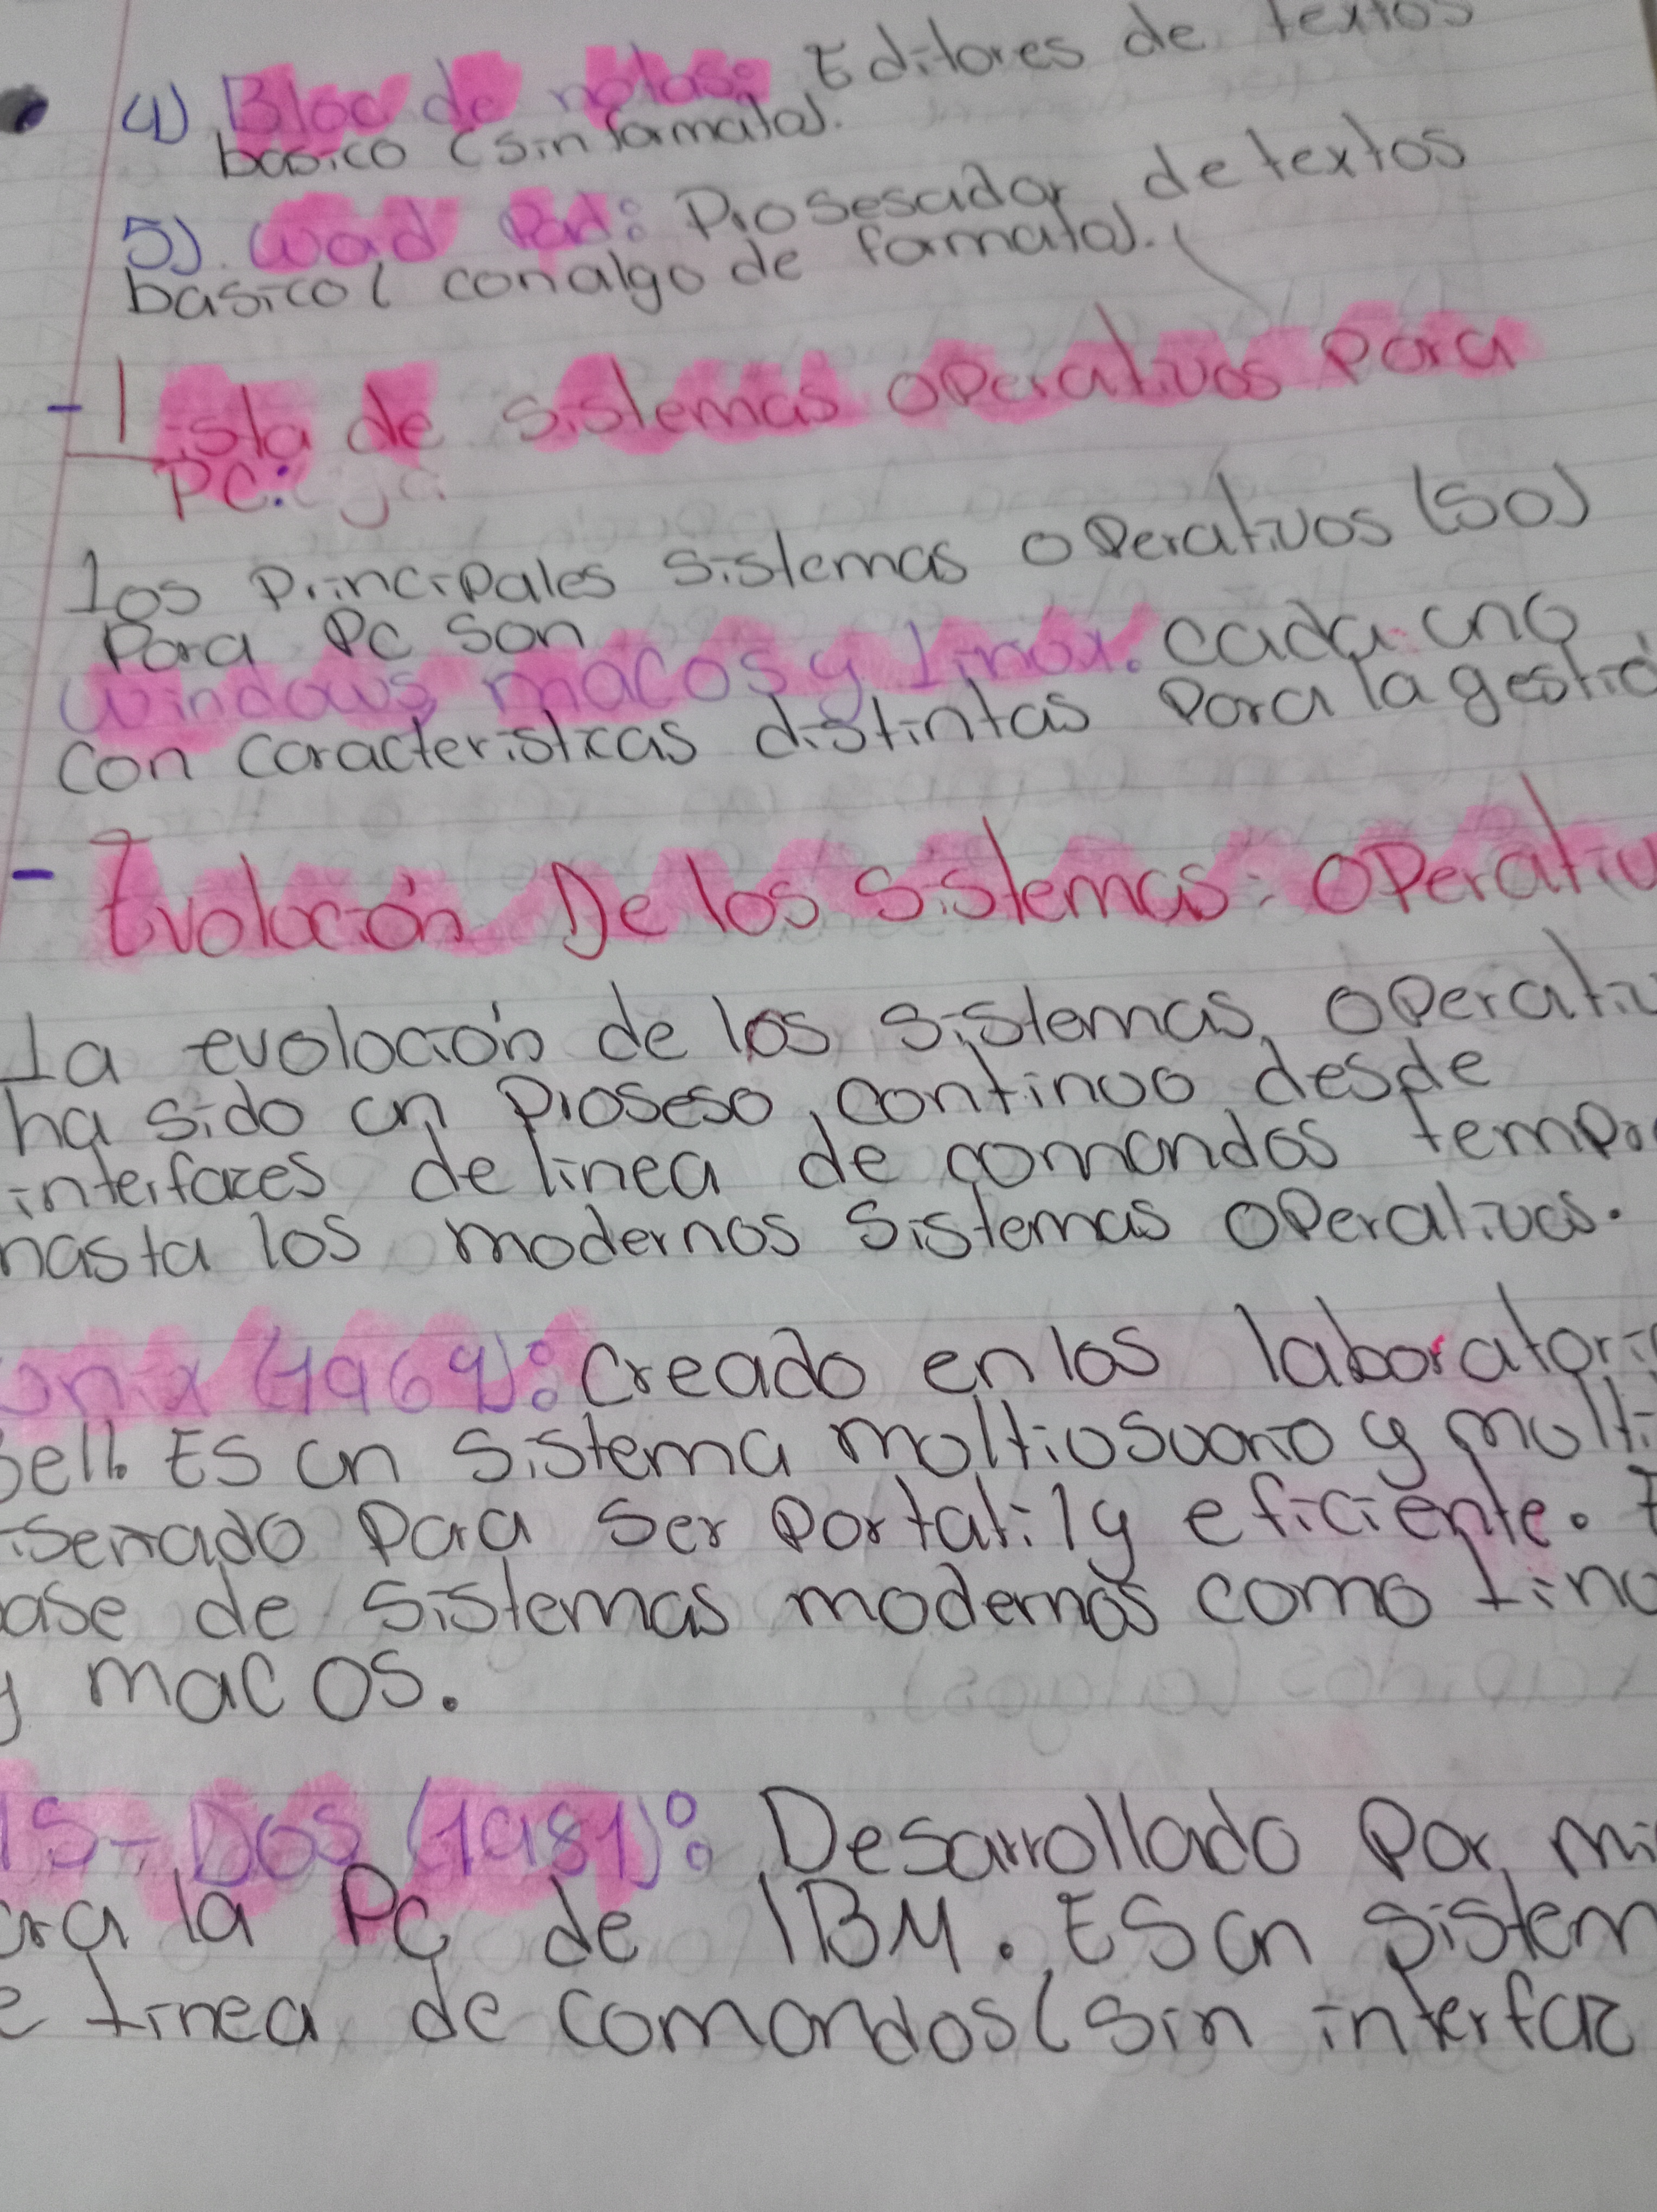 4) Bloc de notas: Editores de textos
basico (sin formato).
5). Word Pad: Prosesador de textos
basico( con algo de formato).
- Lista de sistemas operativos para
PC:
Los principales sistemas operativos (SO)
para PC son
windows, macos y linox. cada uno
con caracteristicas distintas para la gestió
- Evoloción De los sistemas: operativ
La evoloción de los sistemas operativ
ha sido un proseso, continuo desde
interfaces de linea de comandos tempr
hasta los modernos sistemas operativos.
unix (1969): Creado en los laboratori
Bell. Es un sistema moltiosuario y molti
iseñado para ser portatil y eficiente. E
base de sistemas modernos como Lino
y mac OS.
MS-DOS (1981): Desarrollado por mi
ara la PC de IBM. Es un sistem
e Linea de comandos (sin interfaz